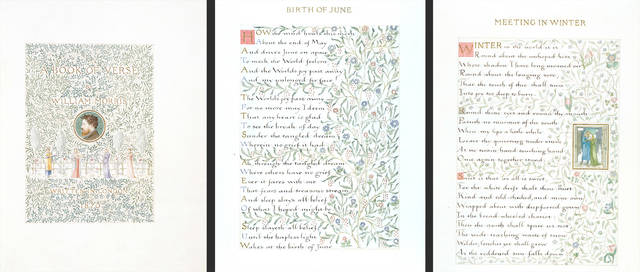 A BOOK OF VERSE
BY
WILLIAM MORRIS
BIRTH OF JUNE
HOW the wind howls this morn
About the end of May
And drives June on apace
To mock the World forlorn
And the Worlds joy passed away
And my unlonged for face
The Worlds joy passed away
For no more may I deem
That any heart is glad
To see the break of day
Sunder the tangled dream
Wherein no grief it had
Ah, through the tangled dream
Where others have no grief
Ever it fares with me
That fears and treasons stream
And sleep slays all belief
Of what I hoped might be
Sleep slayeth all belief
Until the hopeless light
Wakes at the birth of June
MEETING IN WINTER
WINTER in the world it is
Round about the unhoped kiss
Whose shadow I have long moaned o'er
Round about the longing sore,
That the touch of thee shall turn
Into joy too deep to burn.
Round thine eyes and round thy mouth
Passeth no murmur of the south
When my lips a little while
Leave thy quivering tender smile
As we twain, hand touching hand
Once again together stand
Sweet is that as all is sweet
For the white drift shalt thou meet
Kind and cold-cheeked, and mine own
Wrapped about with deep-furred gown
In the broad-wheeled chariot:
Then the north shall spare us not
The wide-reaching waste of snow
Wilder, lonelier yet shall grow
As the reddened sun falls down